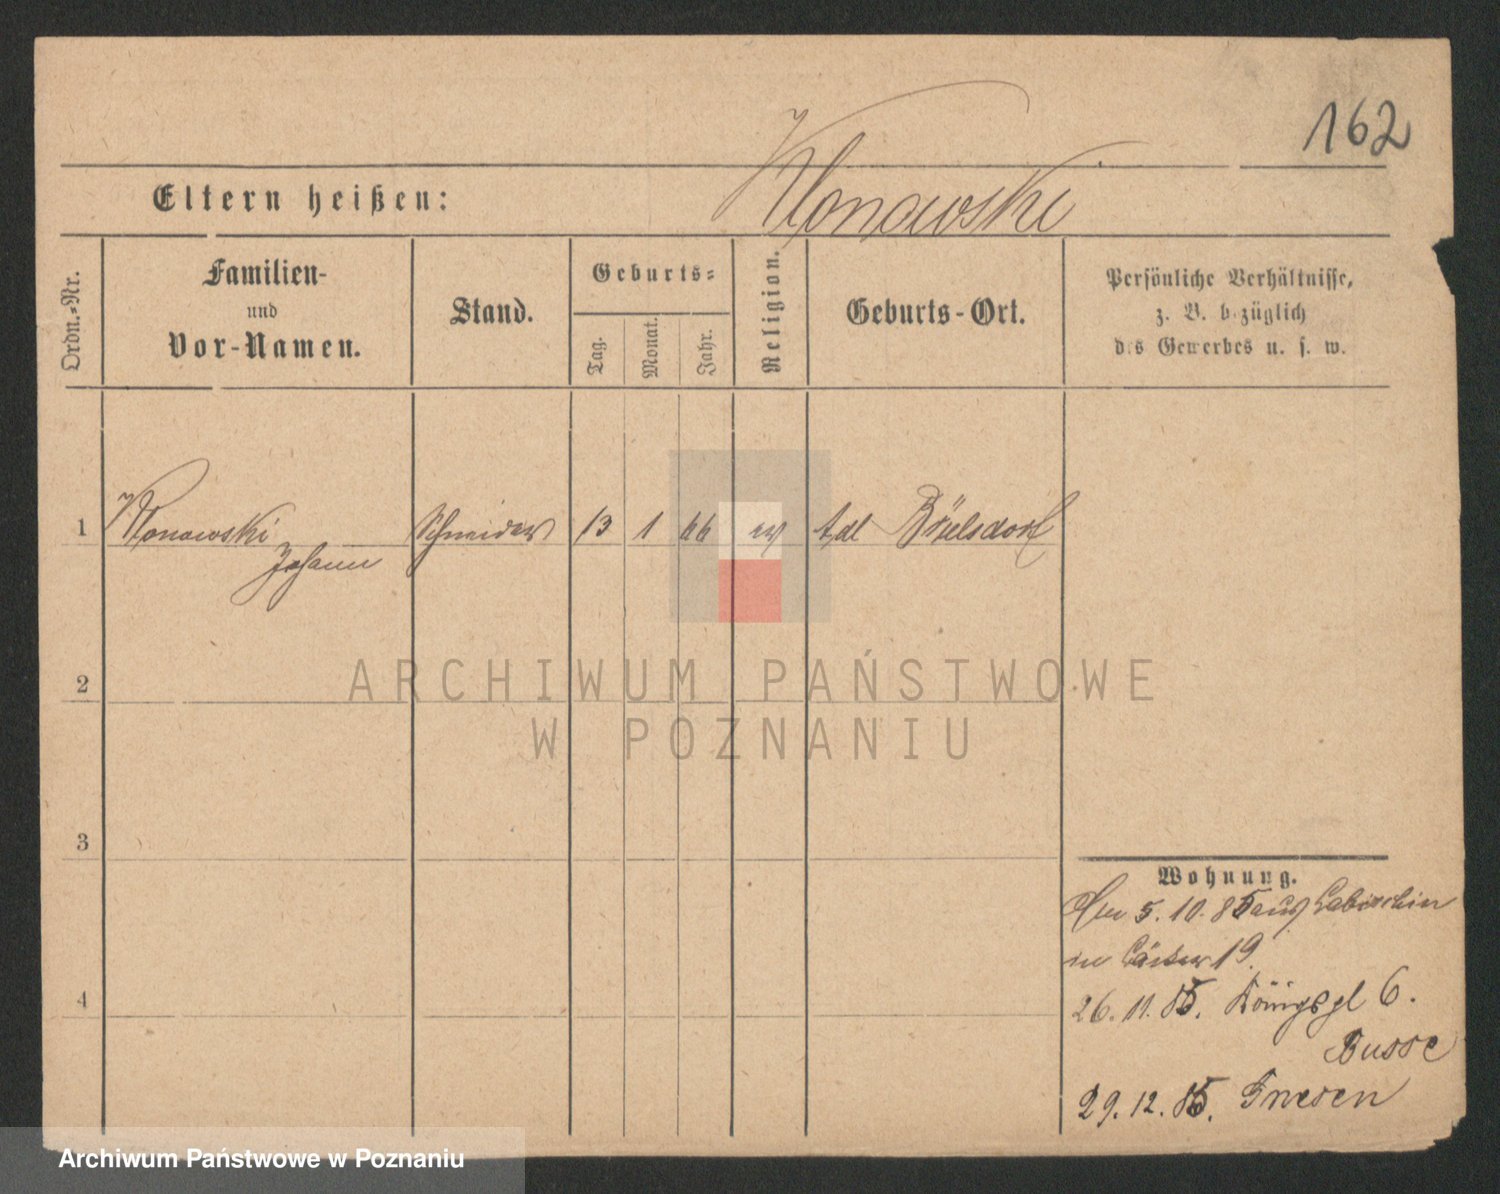 162
Klonowski
Eltern heißen:
Ordn.-Nr.
Familien-
und
Vor-Namen.
Stand.
Geburts-
Tag.
Monat.
Jahr.
Religion.
Geburts-Ort.
Persönliche Verhältnisse,
z. B. bezüglich
des Gewerbes u. s. w.
1 Klonowski Schneider 13 1 66
Johann
2
3
4
Wohnung.
5. 10. 85 aus Labischin
in 19.
26. 11. 85. Königspl 6.
Busse
29. 12. 85. Gnesen
ARCHIWUM PAŃSTWOWE
W POZNANIU
Archiwum Państwowe w Poznaniu